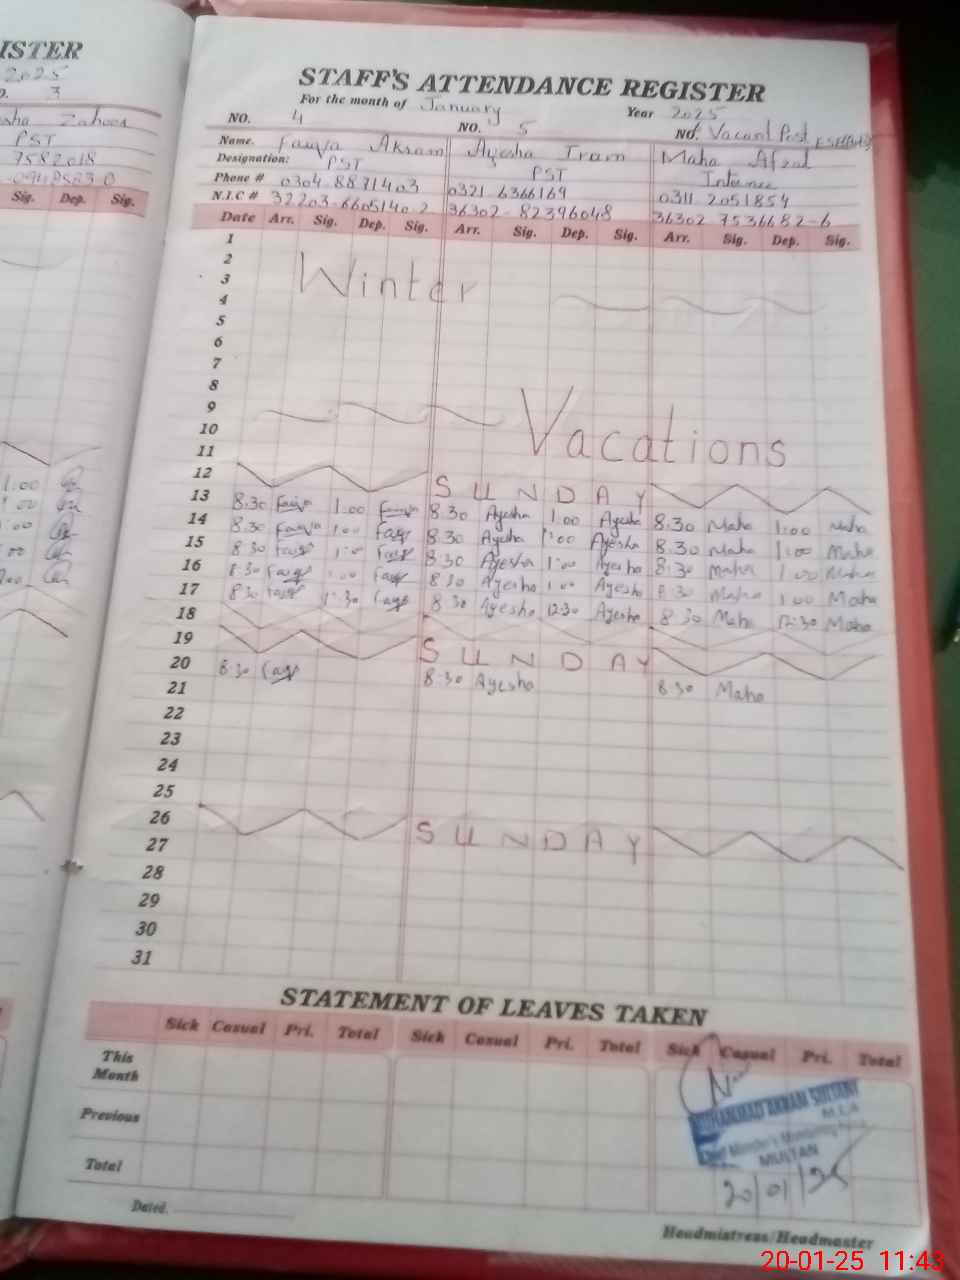 ISTER
2025
3
Zahoor
PST
7582018
Sig. Dep. Sig.
1:00
1:00
1:00
STAFF'S ATTENDANCE REGISTER
For the month of January Year 2025
NO. 4 NO. 5 NO. Vacant Post
Name. Fauzia Akram Ayesha Iram Maha Afzal
Designation: PST PST Internee
Phone # 0304-8871403 0321 6366169 0311 2051854
N.I.C # 32203-6605140-2 36302-82396048 36302 7536682-6
Date Arr. Sig. Dep. Sig. Arr. Sig. Dep. Sig. Arr. Sig. Dep. Sig.
1
2
3 Winter
4
5
6
7
8
9
10 Vacations
11
12 SUNDAY
13 8:30 1:00 8:30 Ayesha 1:00 Ayesha 8:30 Maha 1:00 Maha
14 8:30 1:00 8:30 Ayesha 1:00 Ayesha 8:30 Maha 1:00 Maha
15 8:30 1:00 8:30 Ayesha 1:00 Ayesha 8:30 Maha 1:00 Maha
16 8:30 1:00 8:30 Ayesha 1:00 Ayesha 8:30 Maha 1:00 Maha
17 8:30 12:30 8:30 Ayesha 12:30 Ayesha 8:30 Maha 12:30 Maha
18
19 SUNDAY
20 8:30 8:30 Ayesha 8:30 Maha
21
22
23
24
25
26 SUNDAY
27
28
29
30
31
STATEMENT OF LEAVES TAKEN
Sick Casual Pri. Total Sick Casual Pri. Total Sick Casual Pri. Total
This Month
Previous
Total
MUHAMMAD AKRAM SULTANY
M.E.A
Chief Minister's Monitoring
MULTAN
20/01/25
Dated.
Headmistress/Headmaster
20-01-25 11:43